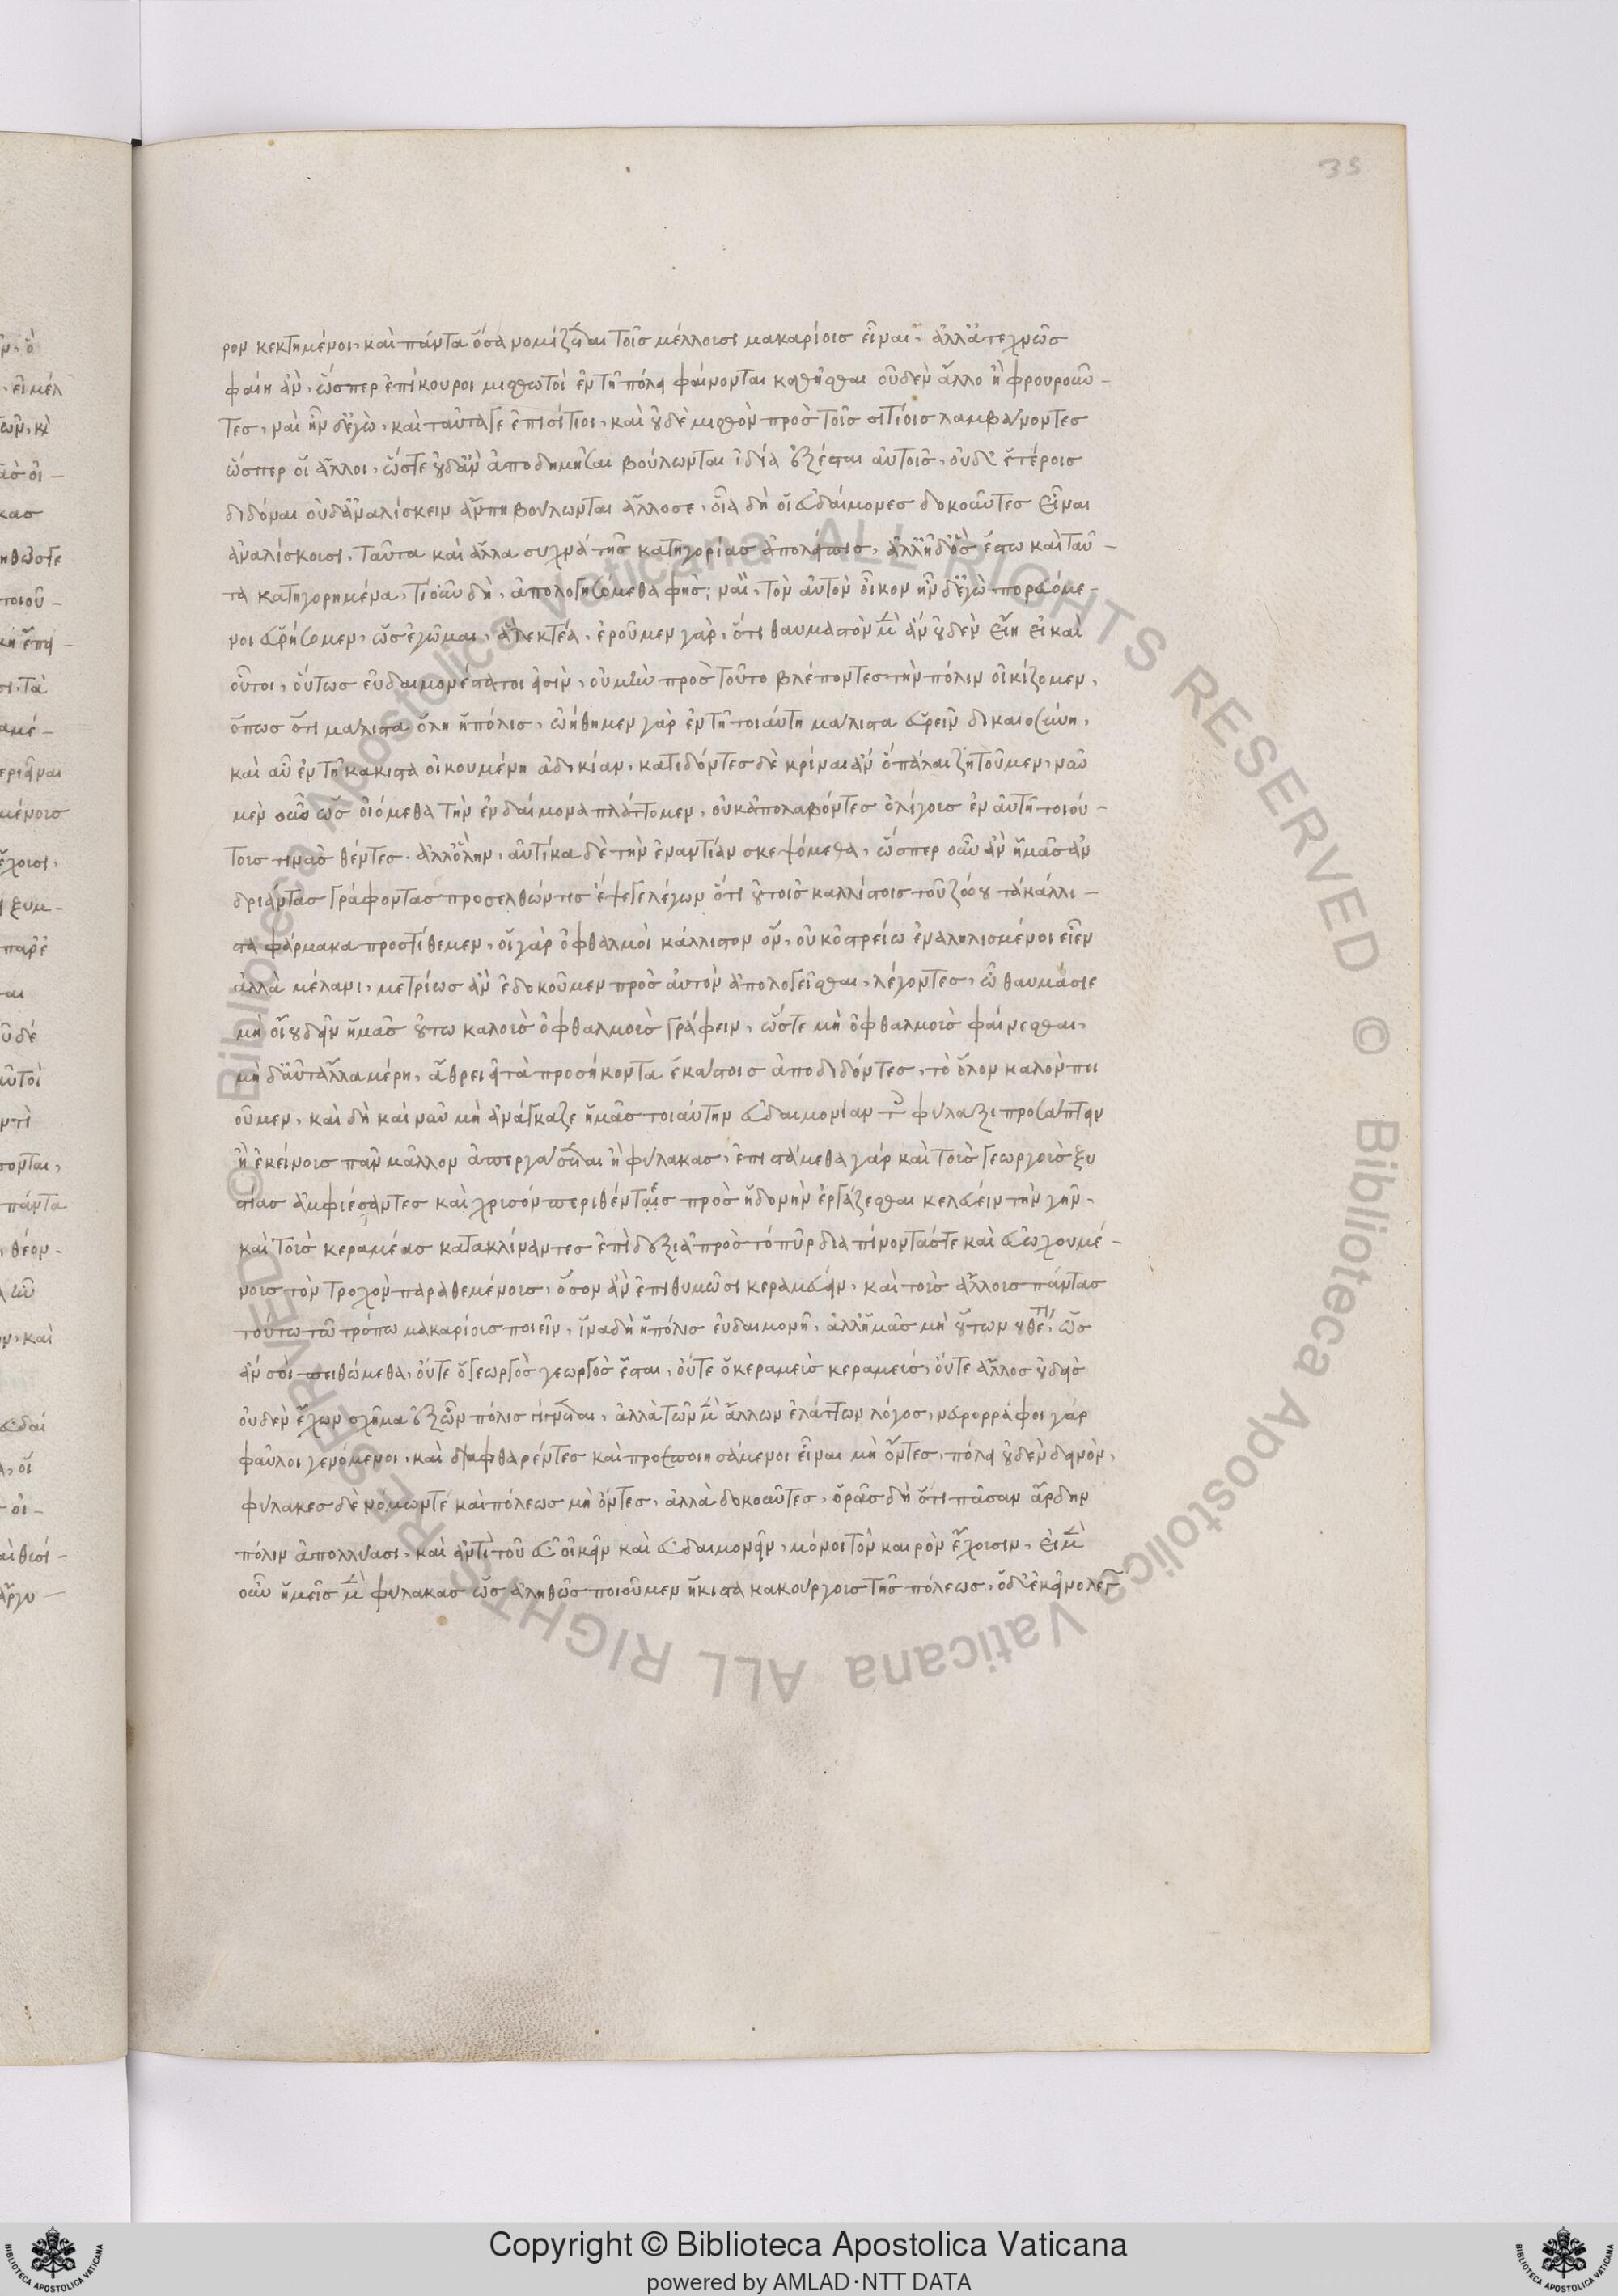 35
ρον κεκτημένοι, καὶ πάντα ὅσα νομίζεται τοῖς μέλλουσι μακαρίοις εἶναι, ἀλλἀτεχνῶς
φαίη ἂν, ὥσπερ ἐπίκουροι μισθωτοὶ ἐν τῇ πόλει φαίνονται καθῆσθαι οὐδὲν ἄλλο ἢ φρουροῦν-
τες, ναὶ ἦν δἐγὼ, καὶ ταῦτάγε ἐπισίτιοι, καὶ οὐδὲ μισθὸν πρὸς τοῖς σιτίοις λαμβάνοντες
ὥσπερ οἱ ἄλλοι, ὥστε οὐδἂν ἀποδημῆσαι βούλωνται ἰδία ἐξέσται αὐτοῖς, οὐδ' ἑτέροις
διδόναι οὐδἀναλίσκειν ἄνπη βούλωνται ἄλλοσε, οἷα δὴ οἱ εὐδαίμονες δοκοῦντες εἶναι
ἀναλίσκουσι, ταῦτα καὶ ἄλλα συχνά τῆς κατηγορίας ἀπολείπεις, ἀλλἦδὃς ἔστω καὶ ταῦ-
τα κατηγορημένα, τί οὖν δὴ, ἀπολογησόμεθα φής; ναὶ, τὸν αὐτὸν οἶκον ἦν δἐγὼ πορευόμε-
νοι εὑρήσομεν, ὡς ἐγὦμαι, ἃ λεκτέα, ἐροῦμεν γὰρ, ὅτι θαυμαστὸν μὲν ἂν οὐδὲν εἴη εἰ καὶ
οὗτοι, οὕτως εὐδαιμονέστατοί εἰσιν, οὐ μὴν πρὸς τοῦτο βλέποντες τὴν πόλιν οἰκίζομεν,
ὅπως ὅτι μάλιστα ὅλη ἡ πόλις, ὠήθημεν γὰρ ἐν τῇ τοιαύτῃ μάλιστα εὑρεῖν δικαιοσύνη,
καὶ αὖ ἐν τῇ κάκιστα οἰκουμένη ἀδικίαν, κατιδόντες δὲ κρίναι ἂν ὃ πάλαι ζητοῦμεν, νῦν
μὲν οὖν ὡς οἰόμεθα τὴν εὐδαίμονα πλάττομεν, οὐκἀπολαβόντες ὀλίγους ἐν αὐτῇ τοιού-
τους τινὰς θέντες. ἀλλὅλην, αὐτίκα δὲ τὴν ἐναντίαν σκεψόμεθα, ὥσπερ οὖν ἂν ἡμᾶς ἀν
δριάντας γράφοντας προσελθών τις ἔψεγε λέγων ὅτι οὐ τοῖς καλλίστοις τοῦ ζώου τὰ κάλλι-
στα φάρμακα προστίθεμεν, οἱ γὰρ ὀφθαλμοὶ κάλλιστον ὂν, οὐκ ὀστρείω ἐναληλιμένοι εἶεν
ἀλλὰ μέλανι, μετρίως ἂν ἐδοκοῦμεν πρὸς αὐτὸν ἀπολογεῖσθαι, λέγοντες, ὦ θαυμάσιε
μὴ οἴου δεῖν ἡμᾶς οὕτω καλοὺς ὀφθαλμοὺς γράφειν, ὥστε μὴ ὀφθαλμοὺς φαίνεσθαι,
μὴ δαὖ τἄλλα μέρη, ἄθρει εἰ τὰ προσήκοντα ἑκάστοις ἀποδιδόντες, τὸ ὅλον καλὸν ποι
οῦμεν, καὶ δὴ καὶ νῦν μὴ ἀνάγκαζε ἡμᾶς τοιαύτην εὐδαιμονίαν τοῖς φύλαξι προσάπτειν
ἣ ἐκείνους πᾶν μᾶλλον ἀπεργάσεται ἢ φύλακας, ἐπιστάμεθα γὰρ καὶ τοὺς γεωργοὺς ξυ
στίδας ἀμφιέσαντες καὶ χρυσόν περιθέντες πρὸς ἡδονὴν ἐργάζεσθαι κελεύειν τὴν γῆν,
καὶ τοὺς κεραμέας κατακλίναντες ἐπὶ δεξιὰ πρὸς τὸ πῦρ διαπίνοντάς τε καὶ εὐωχουμέ-
νους τὸν τροχὸν παραθεμένους, ὅσον ἂν ἐπιθυμῶσι κεραμεύειν, καὶ τοὺς ἄλλους πάντας
τούτω τῶ τρόπω μακαρίους ποιεῖν, ἵνα δὴ ἡ πόλις εὐδαιμονῇ, ἀλλἡμᾶς μὴ οὕτω νουθέτει, ὡς
ἄν σοι πειθώμεθα, οὔτε ὁ γεωργὸς γεωργὸς ἔσται, οὔτε ὁ κεραμεὺς κεραμεύς, οὔτε ἄλλος οὐδεὶς
οὐδὲν ἔχων σχῆμα ἐξ ὧν πόλις γίγνεται, ἀλλὰ τῶν μὲν ἄλλων ἐλάττων λόγος, νευρορράφοι γὰρ
φαῦλοι γενόμενοι, καὶ διαφθαρέντες καὶ προσποιησάμενοι εἶναι μὴ ὄντες, πόλει οὐδὲν δεινὸν,
φύλακες δὲ νόμων τέ καὶ πόλεως μὴ ὄντες, ἀλλὰ δοκοῦντες, ὁρᾶς δὴ ὅτι πᾶσαν ἄρδην
πόλιν ἀπολλύασι, καὶ ἀντὶ τοῦ εὖ οἰκεῖν καὶ εὐδαιμονεῖν, μόνοι τὸν καιρὸν ἔχουσιν, εἰ μὲν
οὖν ἡμεῖς μὲν φύλακας ὡς ἀληθῶς ποιοῦμεν ἥκιστα κακούργους τῆς πόλεως, ὁ δ' ἐκεῖνο λέγ
Copyright © Biblioteca Apostolica Vaticana
powered by AMLAD·NTT DATA